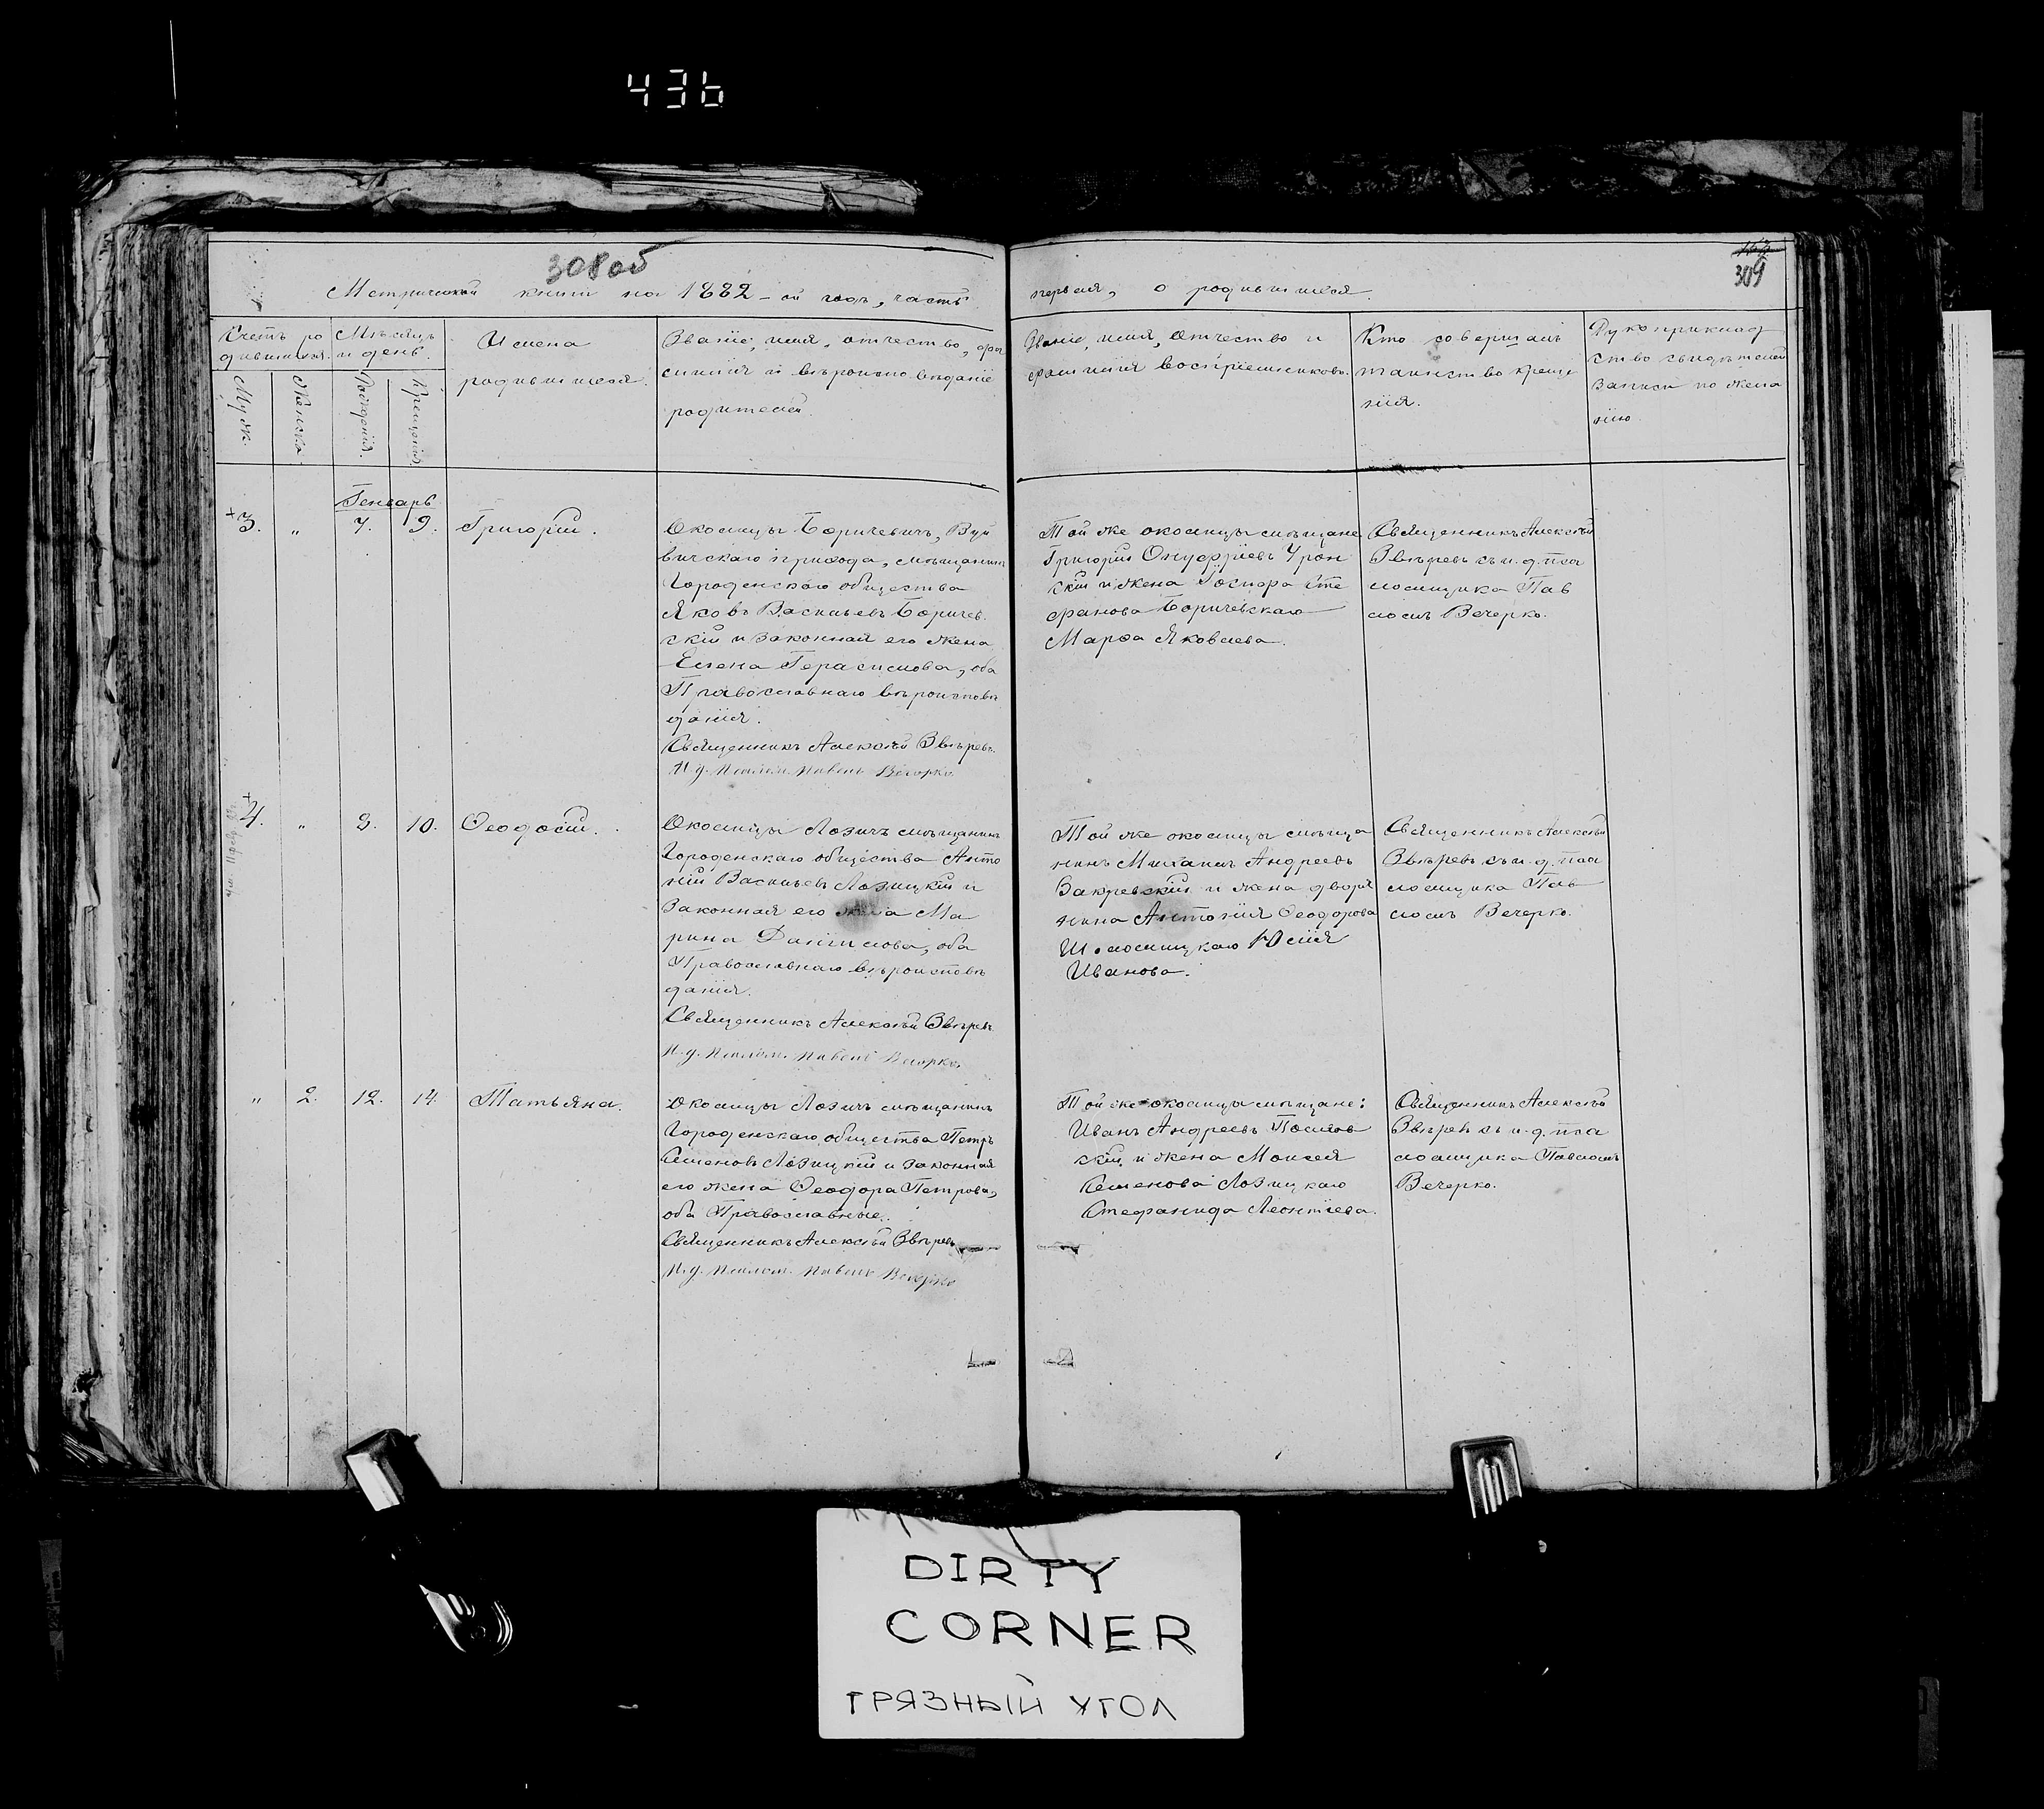 436
308 об
309
Метрической книги на 1882-й годъ, часть первая, о родившихся.
Счетъ ро
дившихся.
Мѣсяцъ
и день.
Мужск.
Женска
Рожденія.
Крещенія.
Имена
родившихся.
Званіе, имя, отчество, фа
милія и вѣроисповѣданіе
родителей.
Званіе, имя, отчество и
фамилія воспріемниковъ.
Кто совершалъ
таинство креще
нія.
Рукоприклад
ство свидѣтелей
записи по жела
нію.
Генварь
3. " 7. 9. Григорій.
Околицы Боричевичъ, Вуй
вичскаго прихода, мѣщанинъ
Городенскаго общества
Яковъ Васильевъ Боричев
скій и законная его жена
Елена Герасимова, оба
Православнаго вѣроисповѣ
данія.
Священникъ Алексѣй Звѣревъ.
И. д. Псалом. Павелъ Вечорко
Той же околицы мѣщане
Григорій Онуфріевъ
скій и жена Сте
фанова Боричевскаго
Марѳа Яковлева.
Священникъ Алексѣй
Звѣревъ съ и. д. пса
ломщика Пав
ломъ Вечерко.
4. " 8. 10. Ѳеодосій.
Околицы Лозичъ мѣщанинъ
Городенскаго общества Анто
ній Васильевъ Лозицкій и
законная его жена Ма
рина Даніилова, оба
Православнаго вѣроисповѣ
данія.
Священникъ Алексѣй Звѣревъ
И. д. Псалом. Павелъ Вечорко.
Той же околицы мѣща
нинъ Михаилъ Андреевъ
Закревскій и жена дворя
нина Антонія Ѳеодорова
Шоломицкаго Юлія
Иванова.
Священникъ Алексѣй
Звѣревъ съ и. д. пса
ломщика Пав
ломъ Вечерко.
" 2. 12. 14. Татьяна.
Околицы Лозичъ мѣщанинъ
Городенскаго общества Петръ
Семеновъ Лозицкій и законная
его жена Ѳеодора Петрова,
оба Православные.
Священникъ Алексѣй Звѣревъ
И. д. Псалом. Павелъ Вечорко
Той же околицы мѣщане:
Иванъ Андреевъ
скій и жена Моисея
Семенова Лозицкаго
Стефанида Леонтіева.
Священникъ Алексѣй
Звѣревъ съ и. д. пса
ломщика Павломъ
Вечерко.
DIRTY
CORNER
ГРЯЗНЫЙ УГОЛ